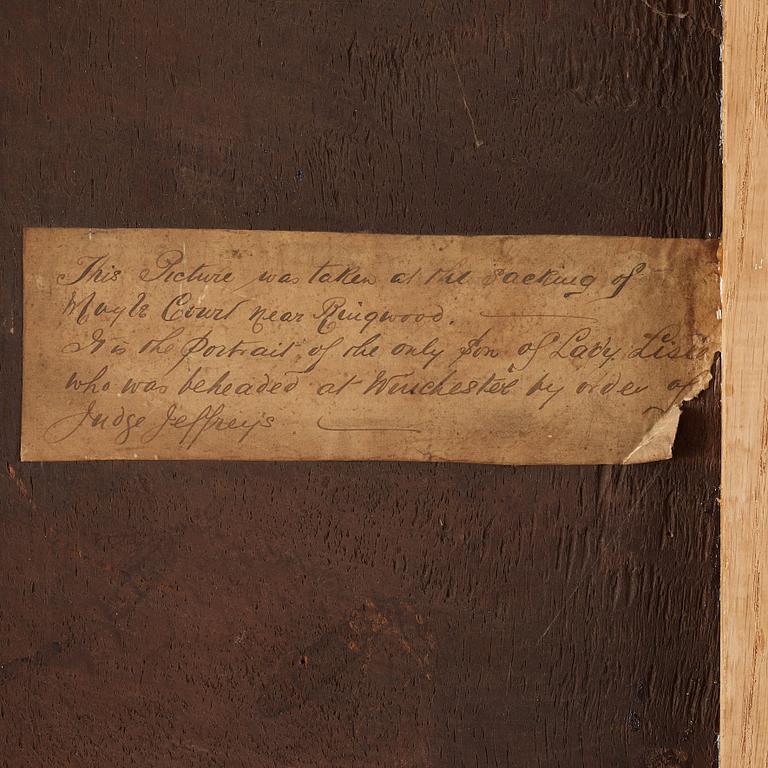 This Picture was taken at the sacking of
Moyle Court near Ringwood.
It is the portrait of the only Son of Lady Lisle
who was beheaded at Winchester by order of
Judge Jeffrey's